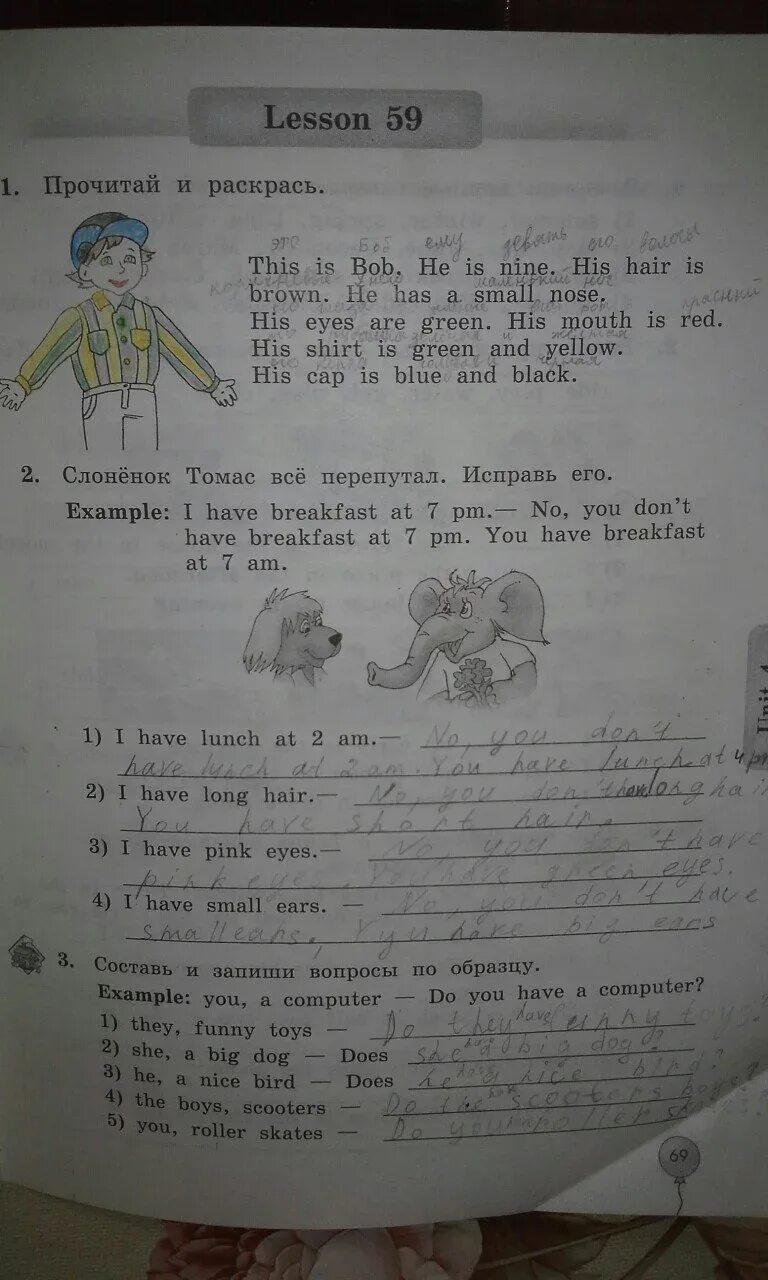 Lesson 59
1. Прочитай и раскрась.
это Боб ему девять его волосы
This is Bob. He is nine. His hair is
маленький нос
brown. He has a small nose.
рот красный
His eyes are green. His mouth is red.
и
His shirt is green and yellow.
His cap is blue and black.
2. Слонёнок Томас всё перепутал. Исправь его.
Example: I have breakfast at 7 pm.— No, you don't
have breakfast at 7 pm. You have breakfast
at 7 am.
1) I have lunch at 2 am.— No, you don't
have lunch at 2 am. You have lunch at 4 pm
2) I have long hair.— No, you don't have long hair
You have short hair.
3) I have pink eyes.— No, you don't have
pink eyes. You have green eyes.
4) I have small ears. — No, you don't have
small ears. Yyu have big ears
Unit 4
3. Составь и запиши вопросы по образцу.
Example: you, a computer — Do you have a computer?
1) they, funny toys — Do they have funny toys?
2) she, a big dog — Does she have a big dog?
3) he, a nice bird — Does he have a nice bird?
4) the boys, scooters — Do the have scooters boys?
5) you, roller skates — Do you have roller
69